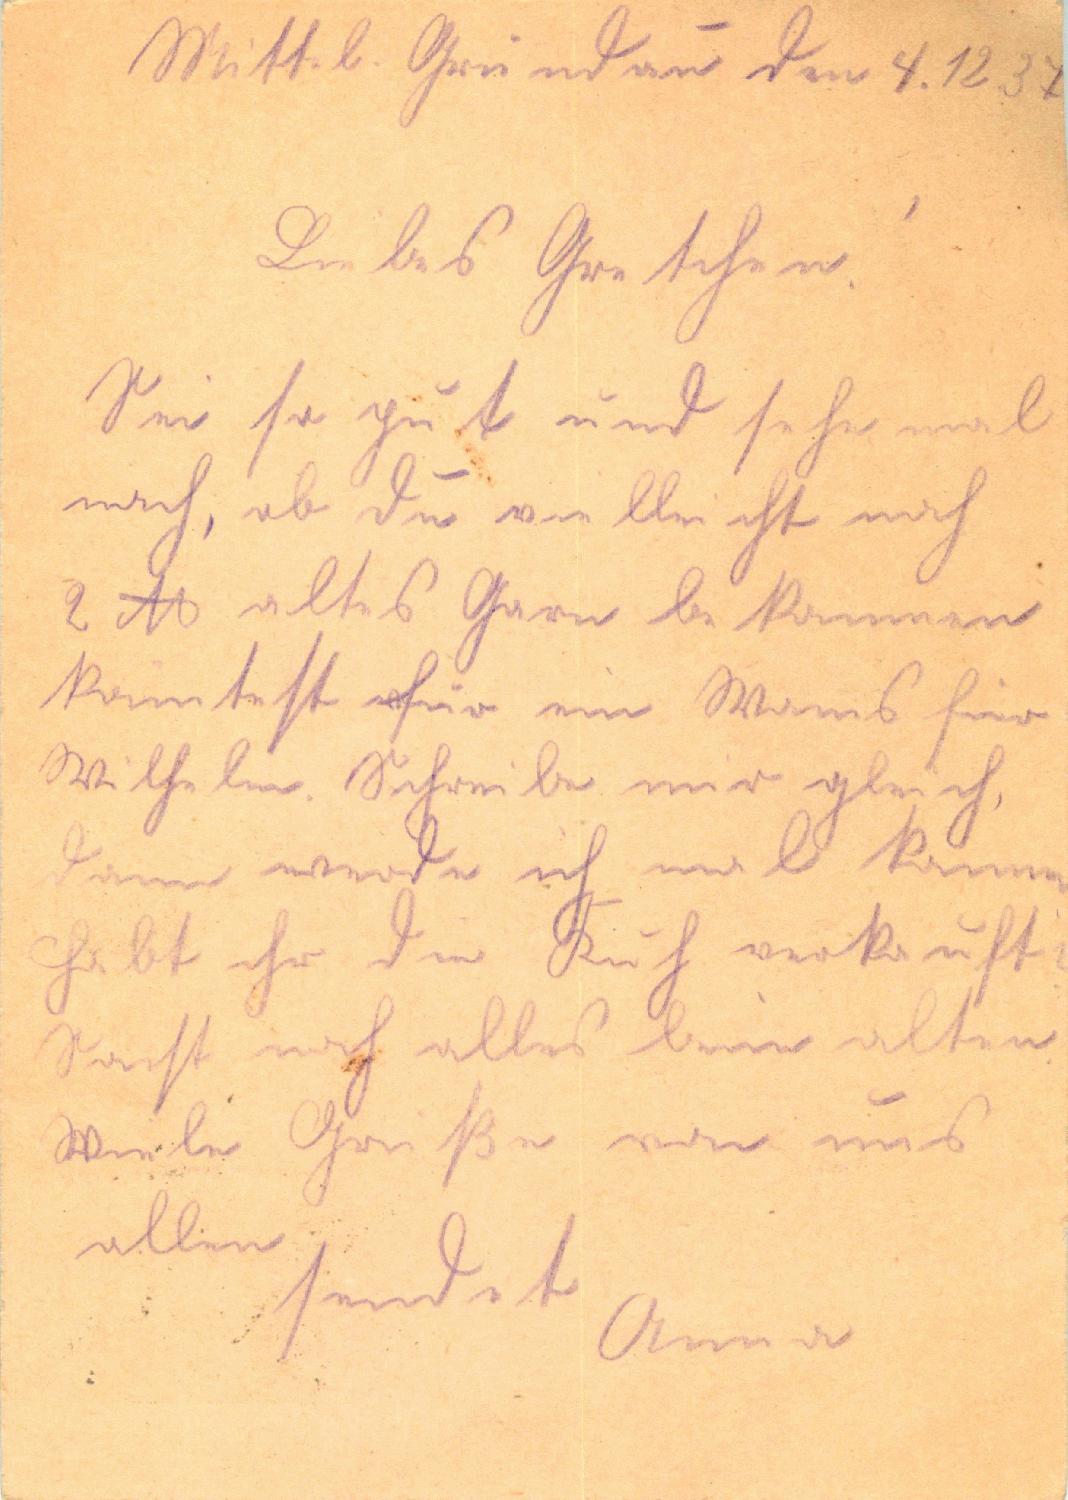 Mittel-Gründau den 4.12.37
Liebes Gretchen!
Sei so gut und sehe mal
nach, ob du vielleicht noch
2 ℔ altes Garn bekommen
könntest für ein Wams für
Wilhelm. Schreibe mir gleich,
dann werde ich mal kommen
habt ihr die Kuh verkauft?
Sonst noch alles beim alten.
Viele Grüße von uns
allen
sendet
Anna